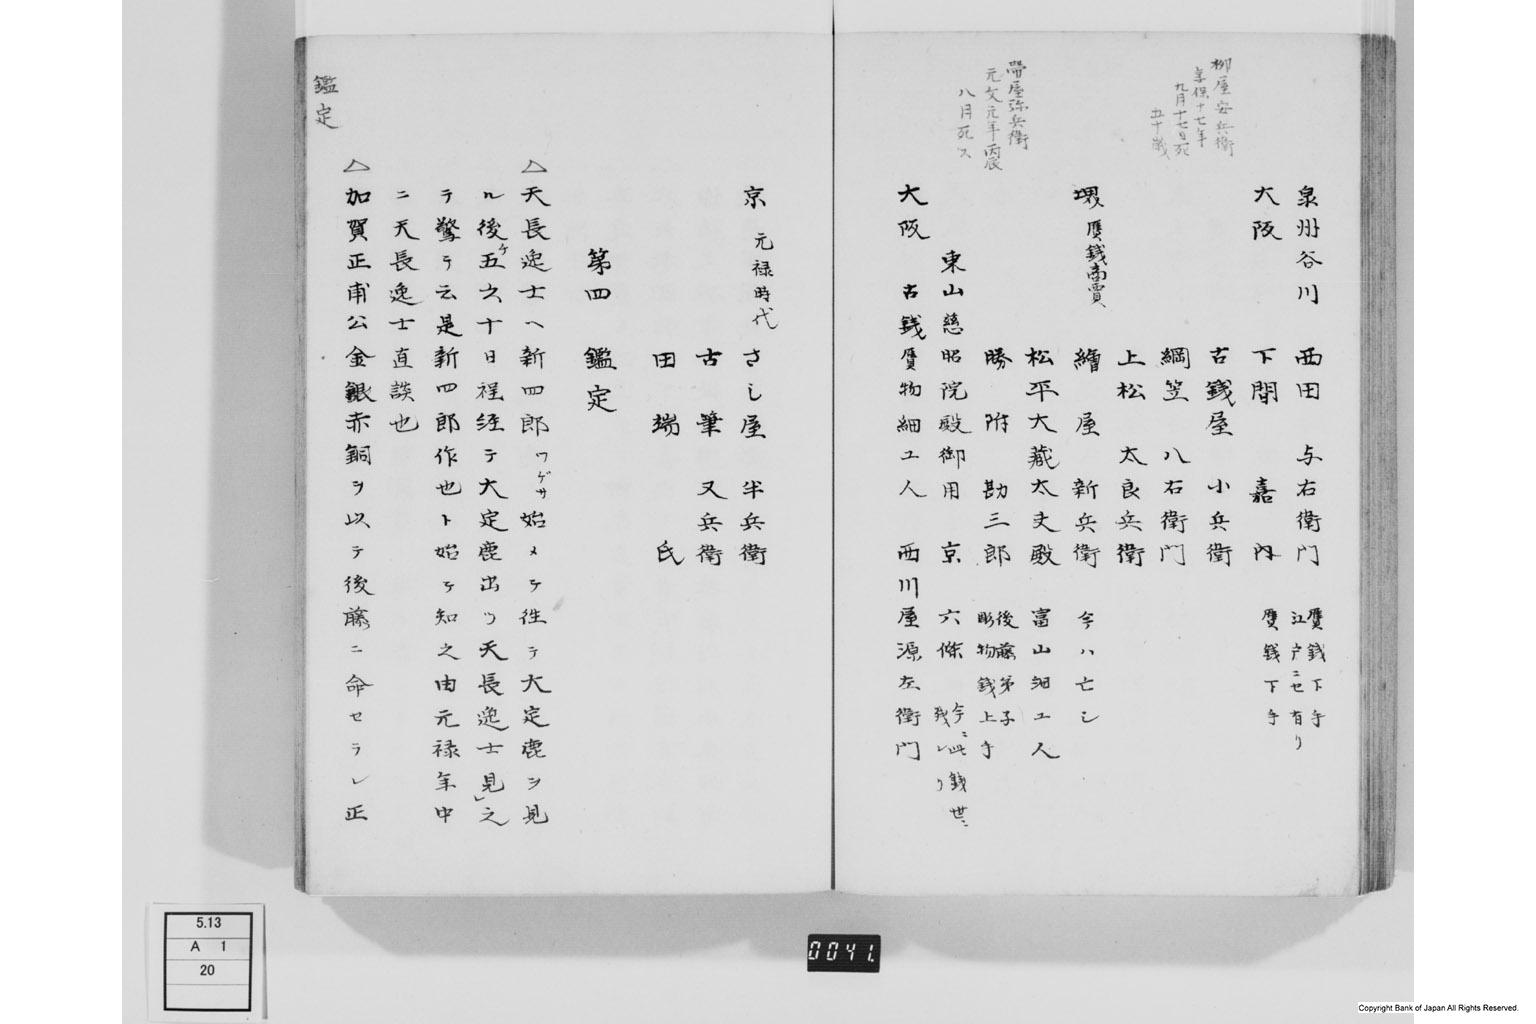 柳屋安兵衛
享保十七年
九月十七日死
五十歳
帯屋弥兵衛
元文元年丙辰
八月死ス
泉州谷川 西田 与右衛門 贋銭下手
江戸ニセ有り
大阪 下間 嘉内 贋銭下手
古銭屋 小兵衛
綱笠 八右衛門
上松 太良兵衛
堺 贋銭商賈 繪屋 新兵衛 今ハ亡シ
松平大蔵太夫殿 富山細工人
勝附 勘三郎 後藤弟子
彫物銭上手
東山慈昭院殿御用 京 六條 今ニ此銭世ニ
残レり
大阪 古銭贋物細工人 西川屋源左衛門
京 元禄時代 さし屋 半兵衛
古筆 又兵衛
田端 氏
第四 鑑定
△天長逸士ヘ新四郎ワゲサ始メテ往テ大定鹿ヲ見
ル後五六十日程経テ大定鹿出ツ天長逸士見レ之
テ驚テ云是新四郎作也ト始テ知之由元禄年中
ニ天長逸士直談也
△加賀正甫公金銀赤銅ヲ以テ後藤ニ命セラレ正
鑑定
5.13
A 1
20
0041.
Copyright Bank of Japan All Rights Reserved.